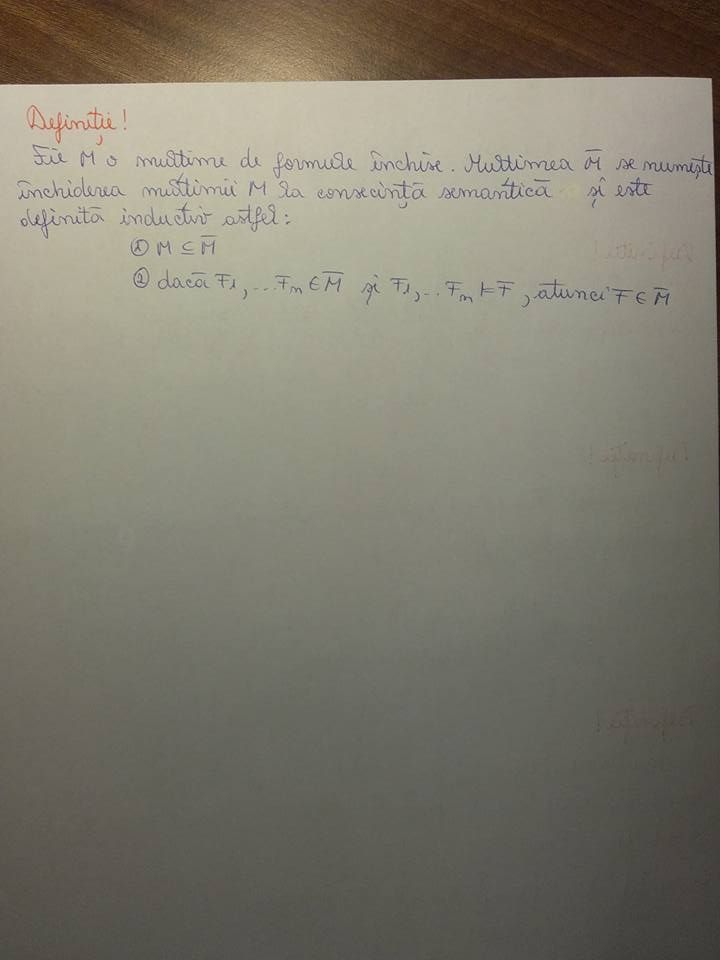 Definiție!
Fie M o mulțime de formule închise. Mulțimea M̄ se numește
închiderea mulțimii M la consecință semantică și este
definită inductiv astfel:
① M ⊆ M̄
② dacă F1, ... Fn ∈ M̄ și F1, ... Fn ⊨ F, atunci F ∈ M̄
Definiție!
Definiție!
Definiție!